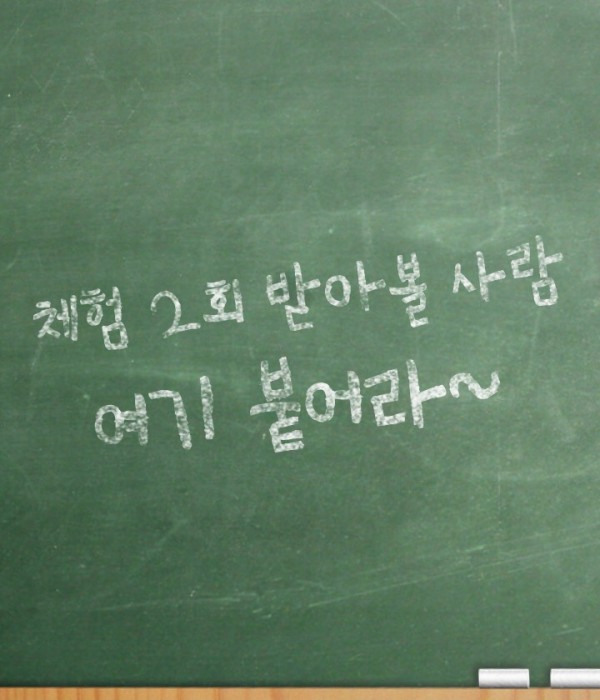 체험 2회 받아볼 사람
여기 붙어라~